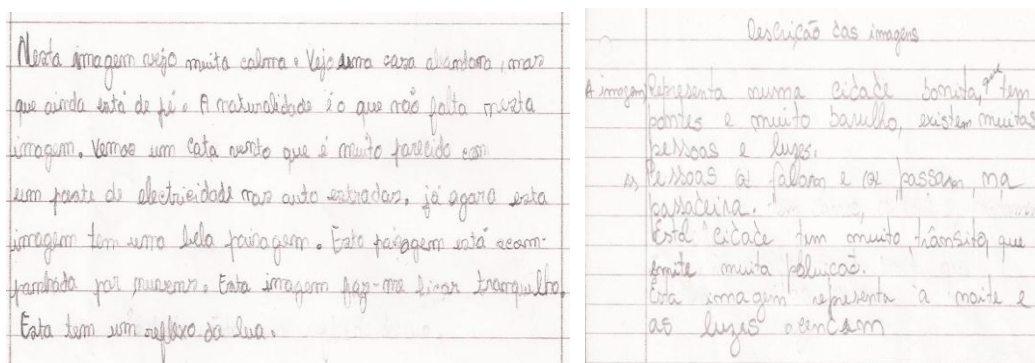 Nesta imagem vejo muita calma. Vejo uma casa abandona, mas
que ainda está de pé. A naturalidade é o que não falta nesta
imagem. Vemos um cata vento que é muito parecido com
um poste de electricidade nas auto estradas, já agora esta
imagem tem uma bela paisagem. Esta paisagem está acom-
panhada por nuvens. Esta imagem faz-me ficar tranquilho.
Esta tem um reflexo da lua.
Descrição das imagens
A imagem Representa numa cidade bonita, que tem
pontes e muito barulho, existem muitas
pessoas e luzes.
Pessoas falam e passam, na
passadeira.
Esta cidade tem muito trânsito, que
emite muita poluição.
Esta imagem representa a noite e
as luzes acencem